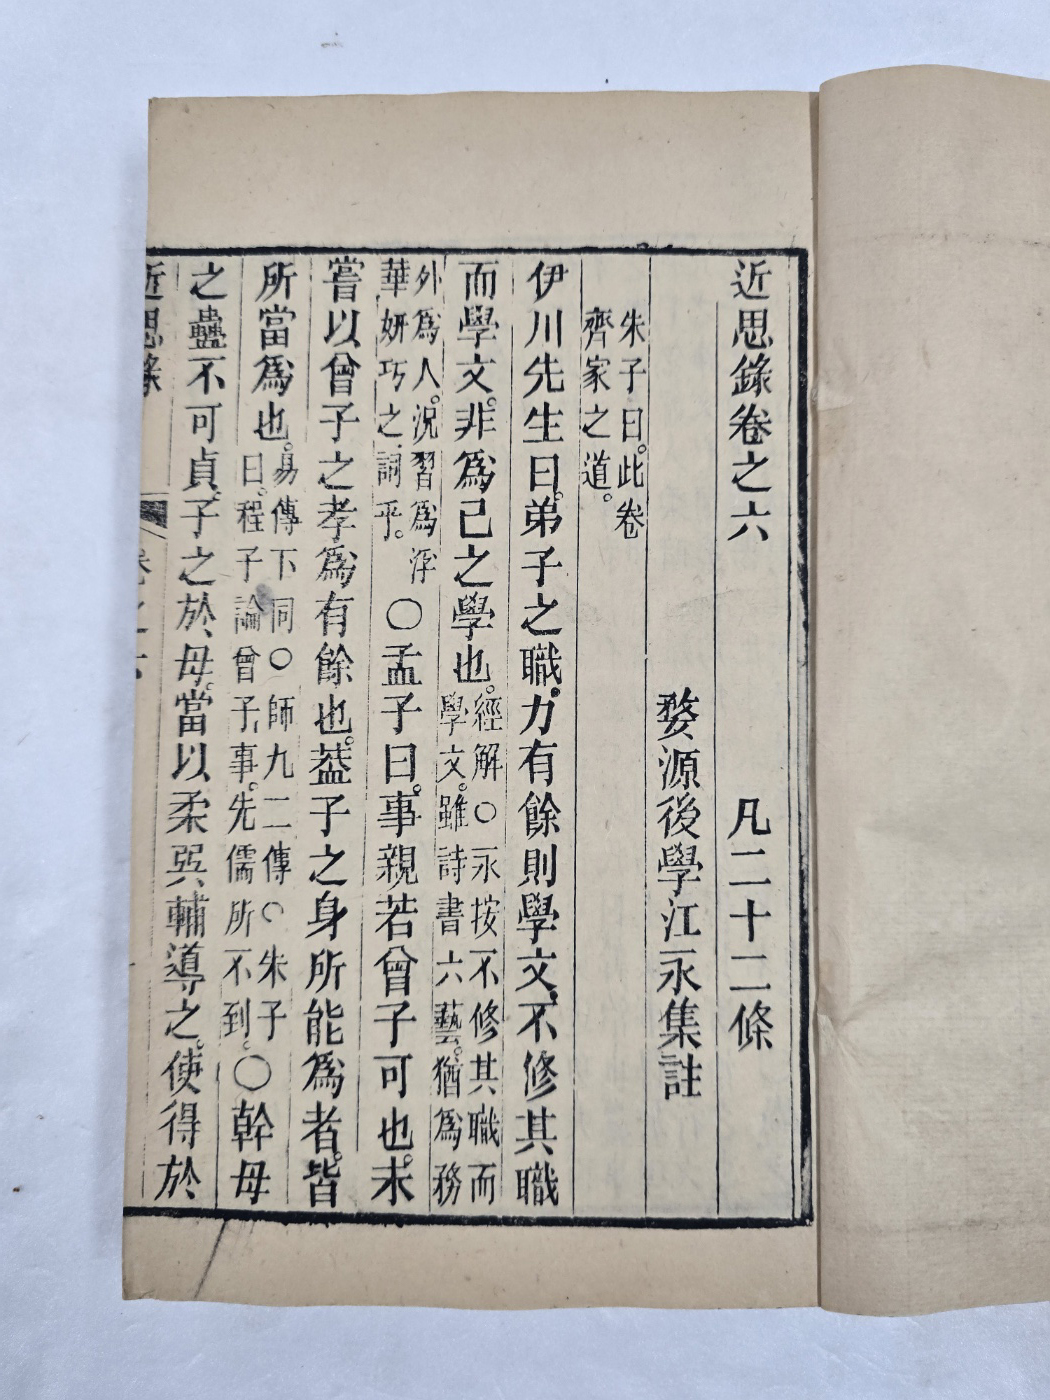 近思錄卷之六
凡二十二條
婺源後學江永集註
朱子曰。此卷
齊家之道。
伊川先生曰。弟子之職。力有餘則學文。不修其職
而學文。非爲己之學也。
經解〇永按不修其職而
學文。雖詩書六藝。猶爲務
外爲人。況習爲浮
華妍巧之詞乎。
〇孟子曰。事親若曾子可也。未
嘗以曾子之孝爲有餘也。葢子之身所能爲者。皆
所當爲也。
易傳下同〇師九二傳〇朱子
曰。程子論曾子事。先儒所不到。
〇幹母
之蠱不可貞。子之於母。當以柔巽輔導之。使得於
近思錄
卷之六